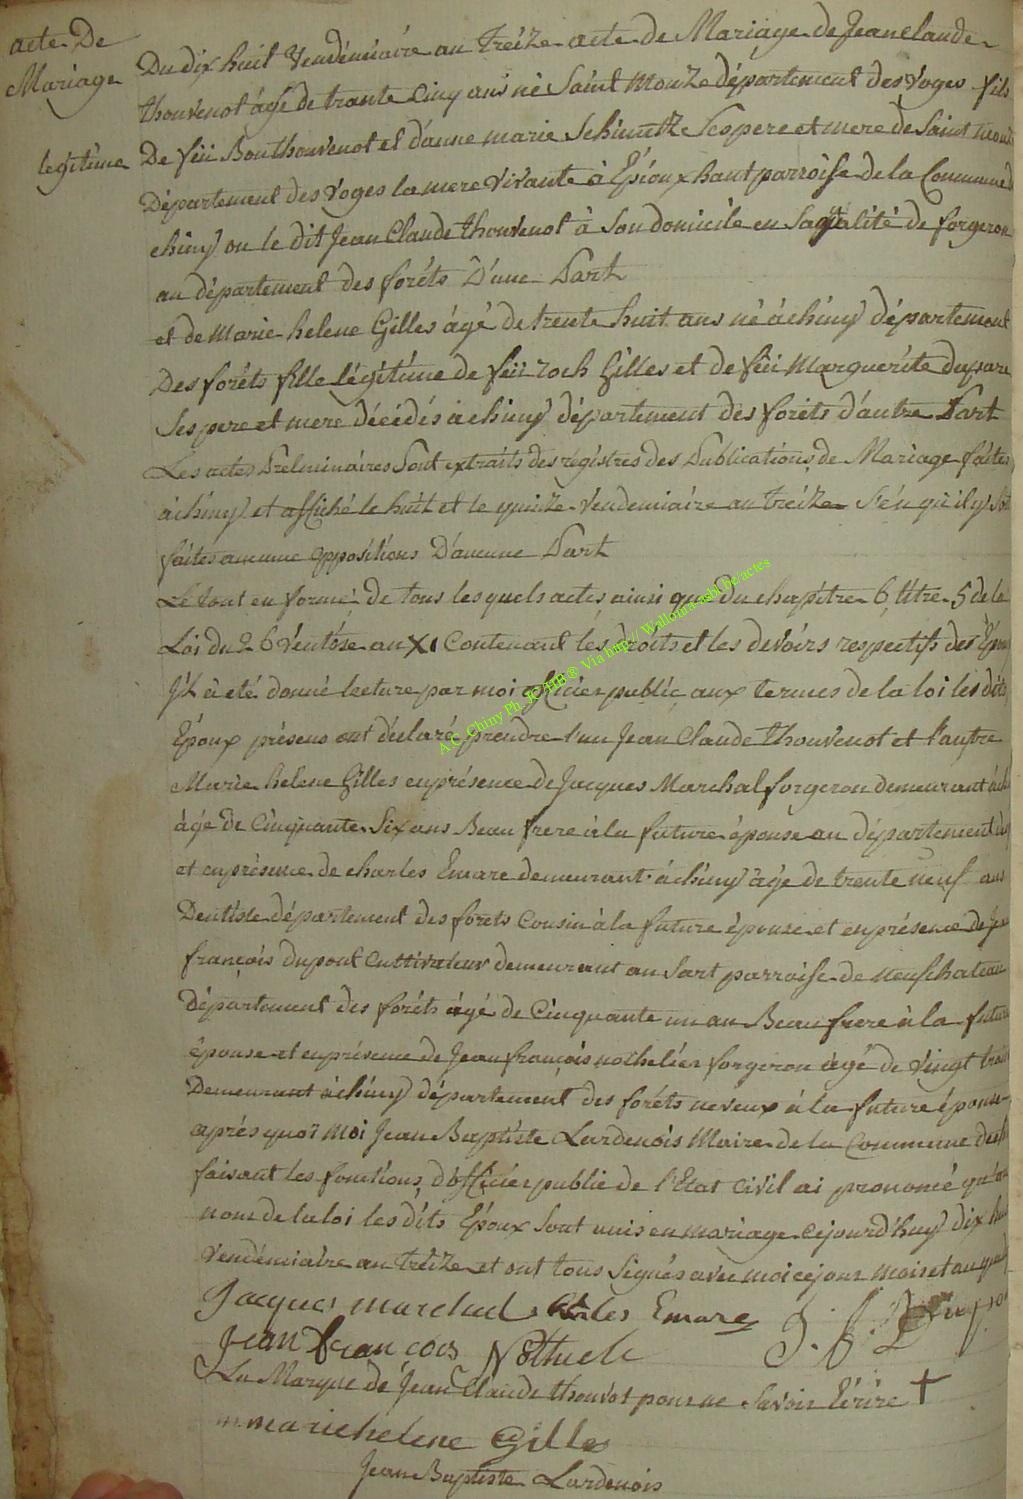 acte De
Mariage
legitime
Du dix huit Vendémiaire an Treize acte de Mariage de Jean claude
thouvenot âgé de trante Cinq ans né Saint Monze département des Voges fils
De féü Bonthouvenot et d'anne marie Schmitz Ses pere et mere de Saint
Département des Voges la mere vivante à Epioux haut parroisse de la Commune
chiny ou le dit Jean Claude thouvenot à Son domicile en Saqualité de forgeron
au département des foréts D'une Part
et de Marie helene Gilles âgé de trente huit ans né à chiny département
Des foréts fille légitime de féü roch Gilles et de féü Marguerite
Ses pere et mere décédés à chiny département des foréts d'autre Part
Les actes Préliminaires Sont extraits des régistres des Publications de Mariage faites
à chiny et affiché le huit et le quinze Vendemiaire an treize S'en qu'il y
faites aucune oppositions D'aucune Part
Le tout en forme de tous les quels actes ainsi que du chapitre 6 titre 5 de la
Loi du 26 Ventôse an XI Contenant les droits et les devoirs respectifs des
Jil à eté donné lecture par moi officier public aux termes de la loi les dits
Epoux présens ont déclaré prendre l'un Jean Claude thouvenot et l'autre
Marie helene Gilles en présence de Jacques Marchal forgeron demeurant
âgé de Cinquante Six ans Beau frere à la future épouse au département
et en présence de charles Emare demeurant à chiny âgé de trente neuf ans
Dentiste département des foréts Cousin à la future épouse et en présence de
françois dupont Cultivateur demeurant au Sart parroisse de neufchateau
Département des foréts âgé de Cinquante un an Beau frere à la future
épouse et en présence de Jean françois nothelier forgeron âgé de Vingt trois
Demeurant à chiny département des foréts neveux à la future épouse
après quoi moi Jean Baptiste Lardenois Maire de la Commune
faisant les fonctions d'officier public de l'Etat Civil ai prononcé qu'au
nom de la loi les dits Epoux Sont unis en mariage cejourd'huy dix
Vendémiaire an Treize et ont tous Signés avec moi ce jour mois et an
Jacques marchal Emare
Jean francois
La Marque de Jean Claude thouvot pour ne Savoir Ecrire +
marie helene Gilles
Jean Baptiste Lardenois
A.C. Chiny Ph. via http://Wallonia-asbl.be/actes